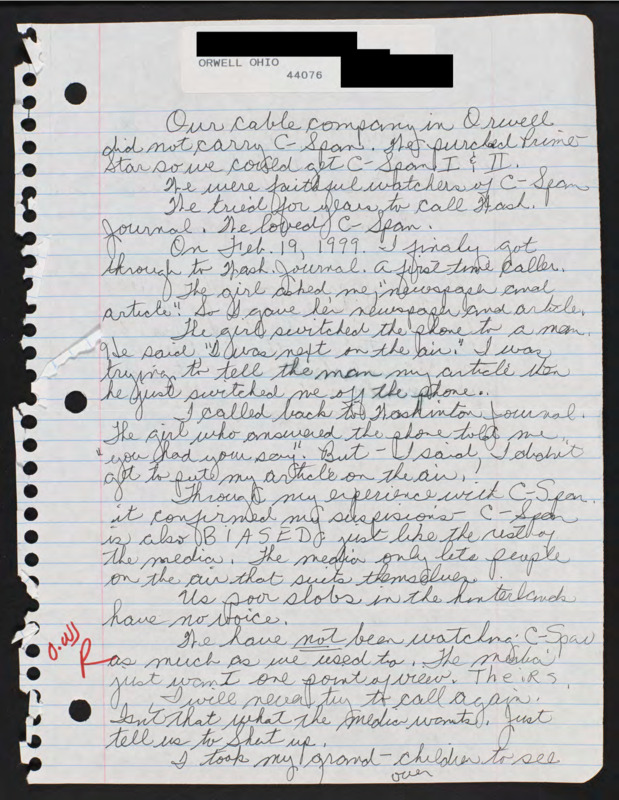 ORWELL OHIO
44076
Our cable company in Orwell
did not carry C-Span. We purched Prime
Star so we could get C-Span I & II.
We were faithful watchers of C-Span
We tried for years to call Wash.
Journal. We loved C-Span.
On Feb. 19, 1999. I finaly got
through to Wash. Journal. A first-time caller.
The girl asked me, "newspaper and
article". So I gave her newspaper and article.
The girl switched the phone to a man.
He said "I was next on the air." I was
trying to tell the man my article when
he just switched me off the phone.
I called back to Washinton Journal.
The girl who answered the phone told me
"you had your say". But - I said, I didn't
get to put my article on the air.
Through my experience with C-Span.
it confirmed my suspisions - C-Span
is also BIASED, just like the rest of
the media. The media only lets people
on the air that suits themselves.
Us poor slobs in the hinterlands
have no voice.
We have not been watching C-Span
as much as we used to. The media
just want one point of view. TheiRS.
I will never try to call again.
Isn't that what the media wants. Just
tell us to shut up.
I took my grand-children to see
over
R